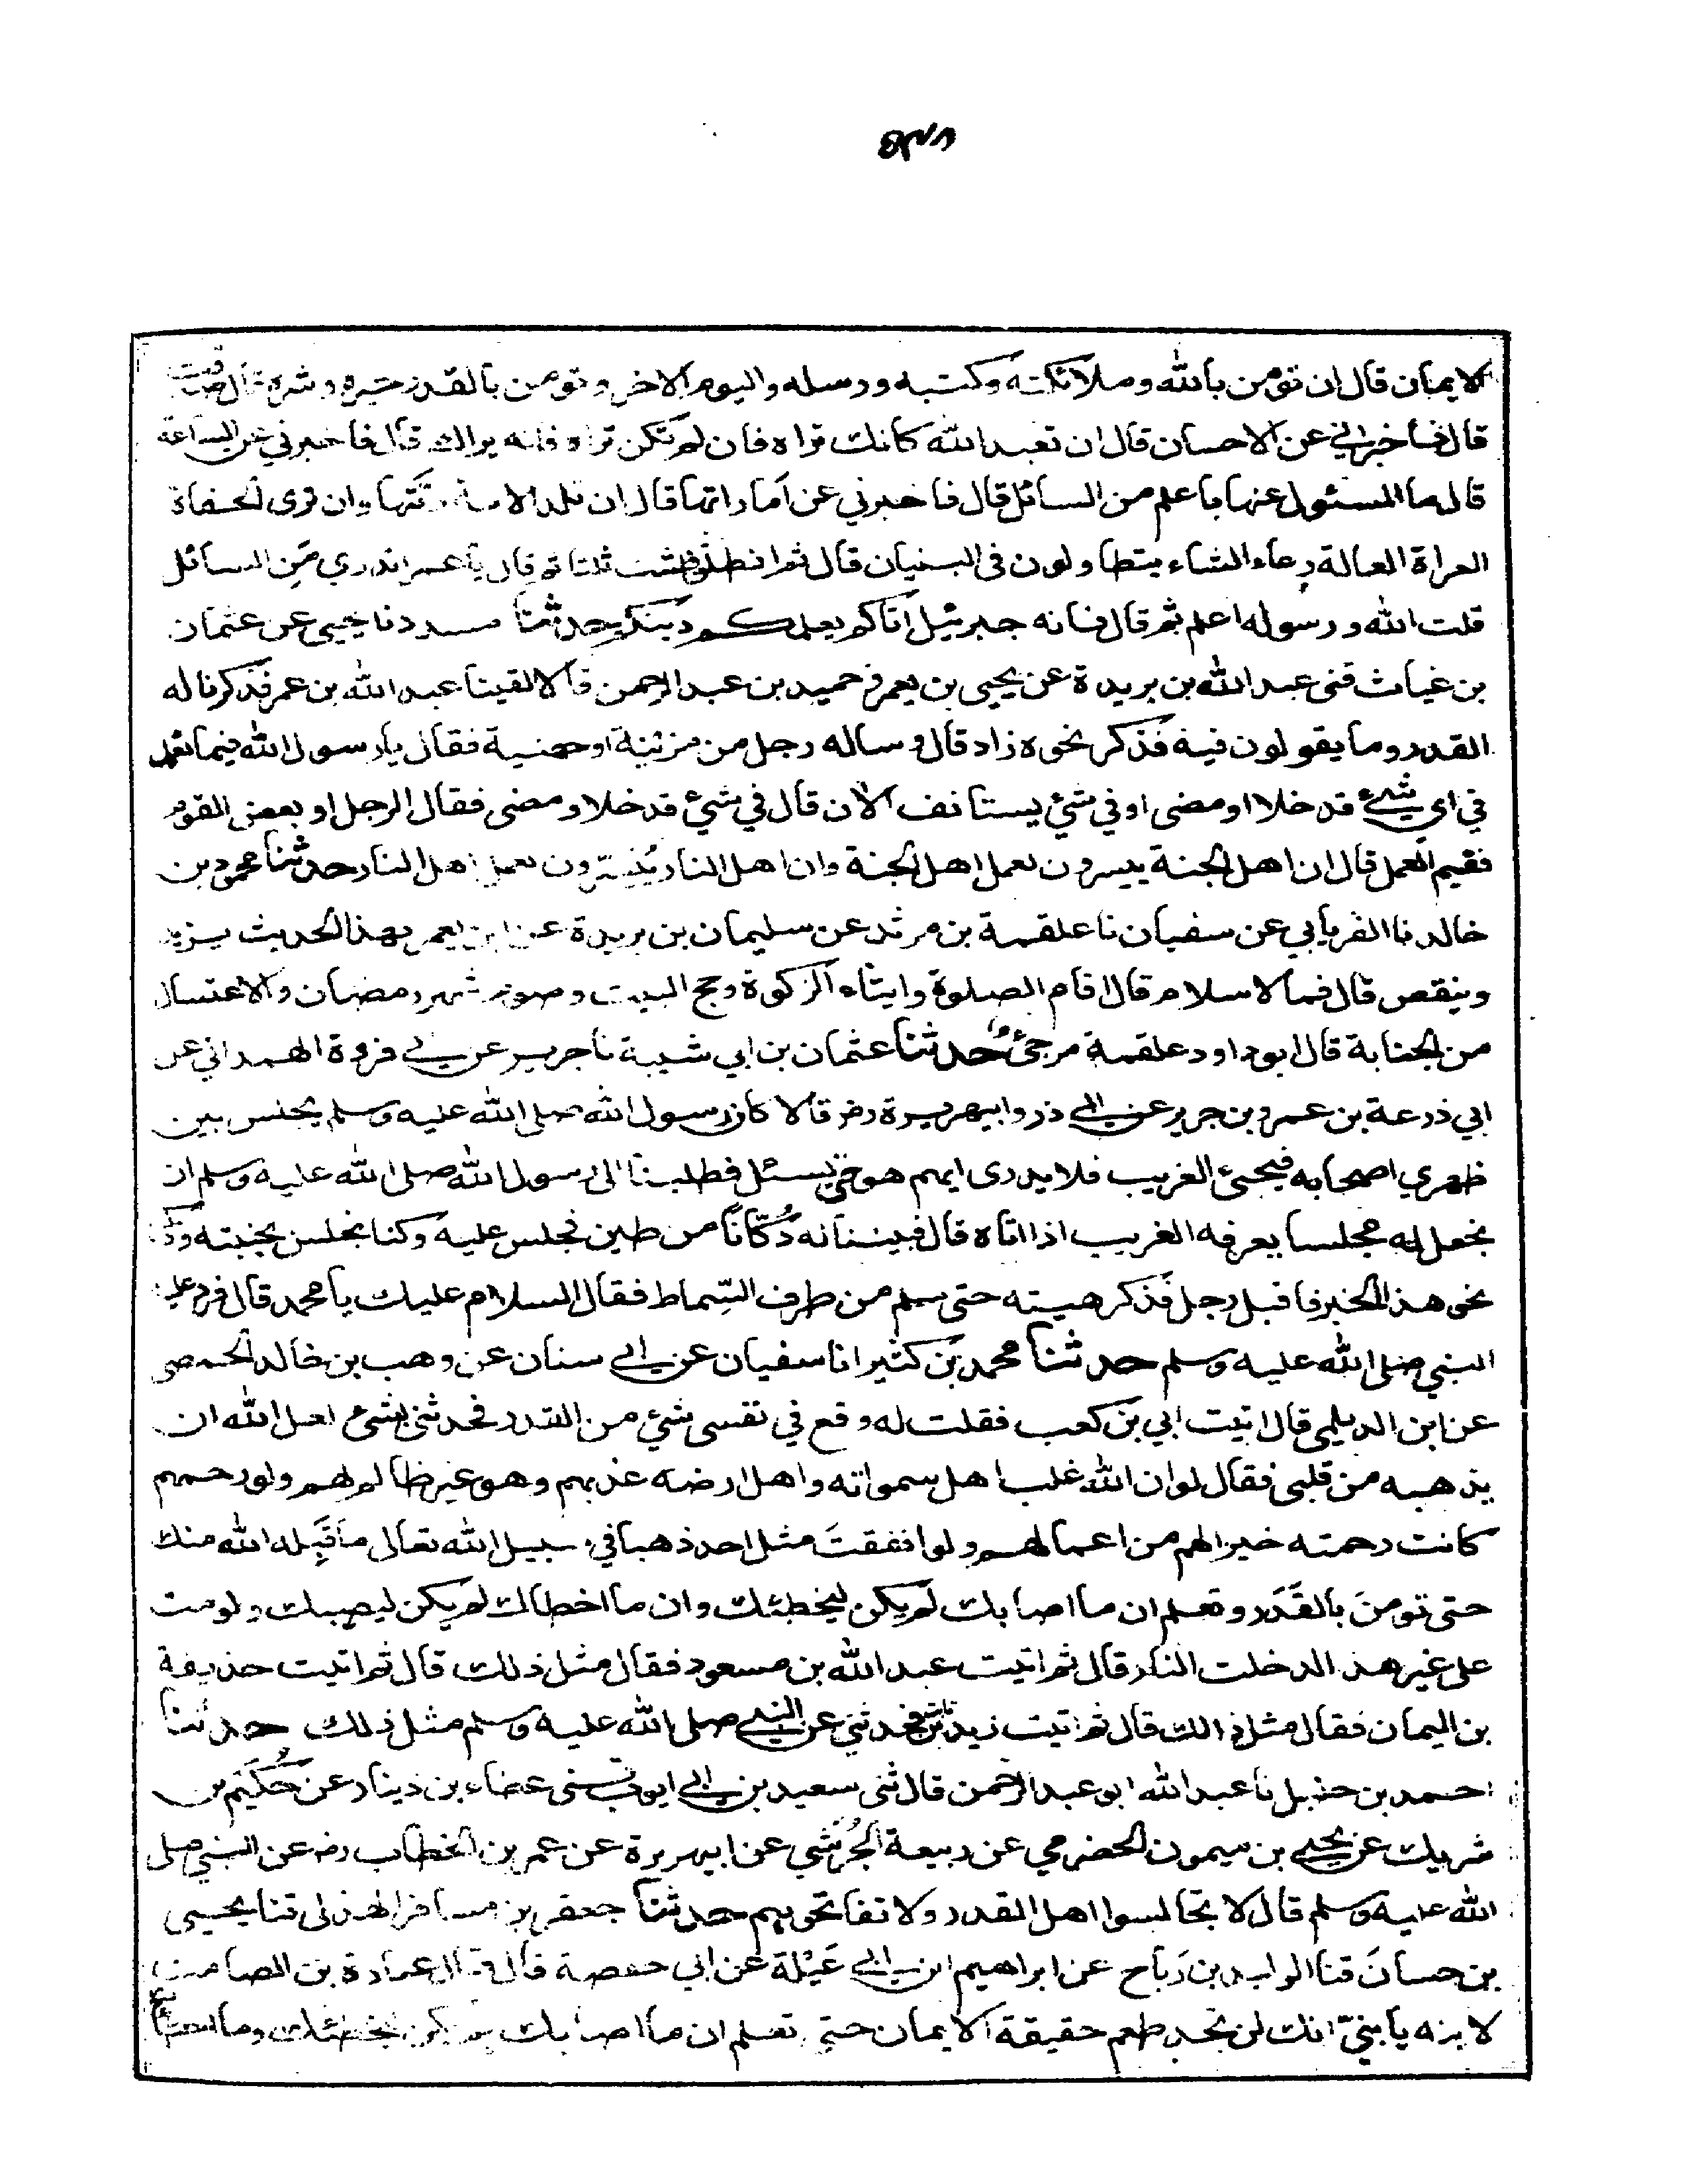 الايمان قال ان تؤمن بالله وملائكته وكتبه ورسله واليوم الاخر وتؤمن بالقدر خيره وشره قال صدقت
قال فاخبرني عن الاحسان قال ان تعبد الله كانك تراه فان لم تكن تراه فانه يراك قال فاخبرني عن الساعة
قال ما المسئول عنها باعلم من السائل قال فاخبرني عن اماراتها قال ان تلد الامة ربتها وان ترى الحفاة
العراة العالة رعاء الشاء يتطاولون في البنيان قال ثم انطلق فلبثت ثلثا ثم قال يا عمر اتدري من السائل
قلت الله ورسوله اعلم ثم قال فانه جبرئيل اتاكم يعلمكم دينكم حدثنا مسدد نا يحيى عن عثمان
بن غياث ثنى عبد الله بن بريدة عن يحيى بن يعمر وحميد بن عبد الرحمن قالا لقينا عبد الله بن عمر فذكرنا له
القدر وما يقولون فيه فذكر نحوه زاد قال وساله رجل من مزينة او جهينة فقال يا رسول الله فيما نعمل
في اي شيء قد خلا او مضى او في شئ يستانف الان قال في شئ قد خلا ومضى فقال الرجل او بعض القوم
ففيم العمل قال ان اهل الجنة ييسرون لعمل اهل الجنة وان اهل النار يُيَسّرون لعمل اهل النار حدثنا محمود بن
خالد نا الفريابي عن سفيان نا علقمة بن مرثد عن سليمان بن بريدة عن ابن يعمر بهذا الحديث يزيد
وينقص قال فما الاسلام قال اقام الصلوة وايتاء الزكوة وحج البيت وصوم شهر رمضان والاغتسال
من الجنابة قال ابو داود علقمة مرجئ حدثنا عثمان بن ابي شيبة نا جرير عن ابي فروة الهمداني عن
ابي زرعة بن عمرو بن جرير عن ابي ذر وابيهريرة رض قالا كان رسول الله صلى الله عليه وسلم يجلس بين
ظهري اصحابه فيجئ الغريب فلا يدرى ايهم هو حتى يسئل فطلبنا الى رسول الله صلى الله عليه وسلم ان
نجعل له مجلسا يعرفه الغريب اذا اتاه قال فبنينا له دُكّانًا من طين فجلس عليه وكنا نجلس بجنبته وذكر
نحو هذا الخبر فاقبل رجل فذكر هيئته حتى سلم من طرف السِّماط فقال السلام عليك يا محمد قال فرد عليه
النبي صلى الله عليه وسلم حدثنا محمد بن كثير انا سفيان عن ابي سنان عن وهب بن خالد الحمصي
عن ابن الديلمي قال اتيت ابي بن كعب فقلت له وقع في نفسي شئ من القدر فحدثنى بشئ لعل الله ان
يذهبه من قلبي فقال لو ان الله عذب اهل سمواته واهل ارضه عذبهم وهو غير ظالم لهم ولو رحمهم
كانت رحمته خيرا لهم من اعمالهم ولو انفقتَ مثل احد ذهبا في سبيل الله تعالى ما قَبِله الله منك
حتى تؤمنَ بالقَدَر وتعلم ان ما اصابك لم يكن ليخطئك وان ما اخطاك لم يكن ليصيبك ولو مت
على غير هذا لدخلت النار قال ثم اتيت عبد الله بن مسعود فقال مثل ذلك قال ثم اتيت حذيفة
بن اليمان فقال مثل ذالك قال ثم اتيت زيد بن ثابت فحدثني عن النبي صلى الله عليه وسلم مثل ذلك حدثنا
احمد بن حنبل نا عبد الله ابو عبد الرحمن قال ثنى سعيد بن ابي ايوب ثنى عطاء بن دينار عن حُكَيم بن
شريك عن يحيى بن ميمون الحضرمي عن ربيعة الجُرَشي عن ابيهريرة عن عمر بن الخطاب رض عن النبي صلى
الله عليه وسلم قال لا تجالسوا اهل القدر ولا تفاتحوهم حدثنا جعفر بن مسافر الهذلى ثنا يحيى
بن حسانَ ثنا الوليد بن رَباح عن ابراهيم بن ابي عَبْلة عن ابي حفصة قال قال عبادة بن الصامت
لابنه يا بنيّ انك لن تجد طعم حقيقة الايمان حتى تعلم ان ما اصابك لم يكن ليخطئك وما اخطاك